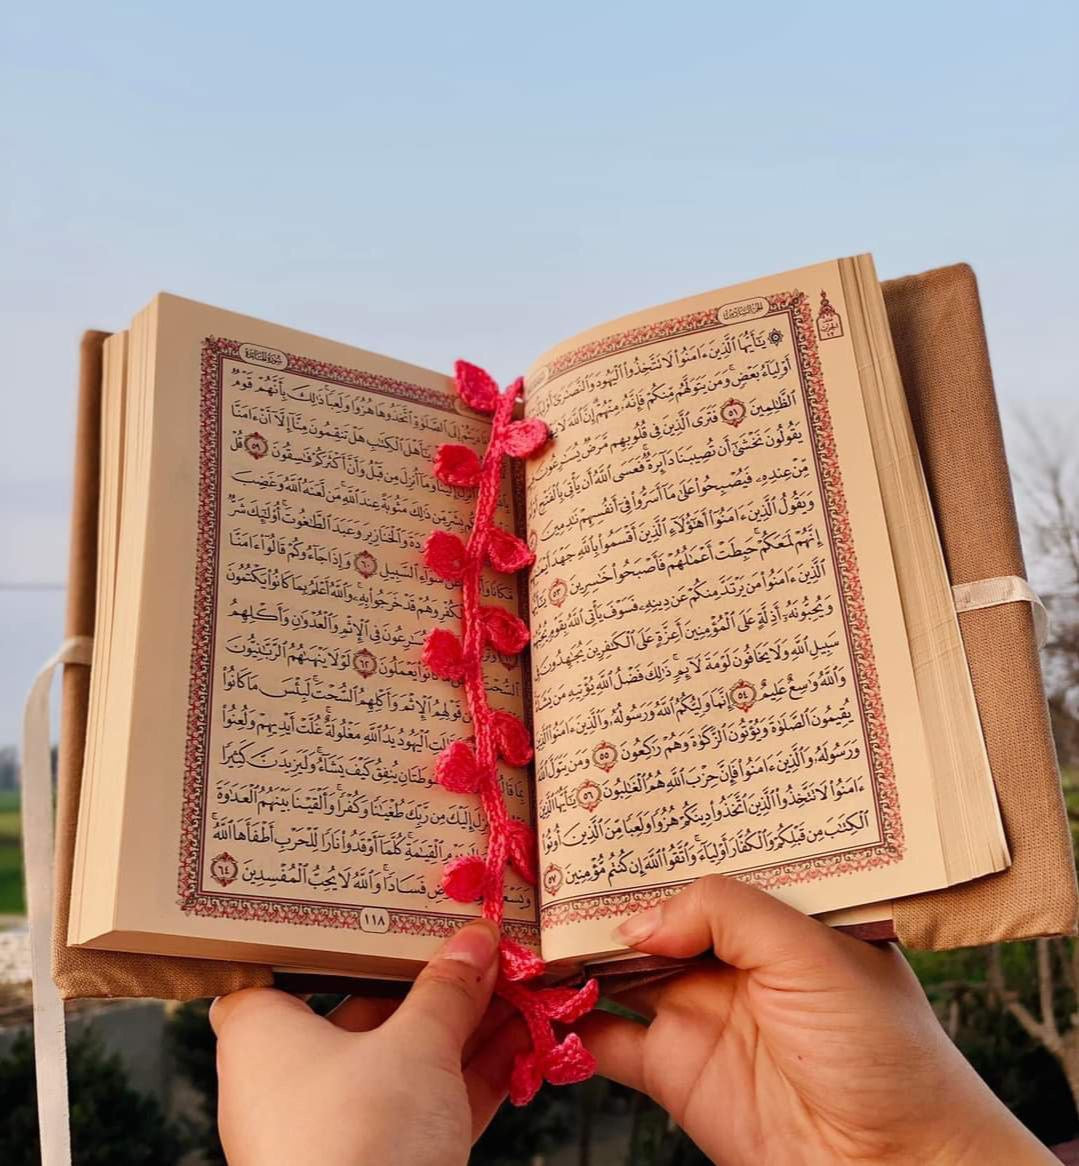 الجزء السادس
الحزب
۞ يَٰٓأَيُّهَا ٱلَّذِينَ ءَامَنُوا۟ لَا تَتَّخِذُوا۟ ٱلْيَهُودَ وَٱلنَّصَٰرَىٰٓ
أَوْلِيَآءُ بَعْضٍ ۚ وَمَن يَتَوَلَّهُم مِّنكُمْ فَإِنَّهُۥ مِنْهُمْ ۗ إِنَّ ٱللَّهَ لَا
ٱلظَّٰلِمِينَ ٥١ فَتَرَى ٱلَّذِينَ فِى قُلُوبِهِم مَّرَضٌ يُسَٰرِعُونَ
يَقُولُونَ نَخْشَىٰٓ أَن تُصِيبَنَا دَآئِرَةٌ ۚ فَعَسَى ٱللَّهُ أَن يَأْتِىَ بِٱلْفَتْحِ
مِّنْ عِندِهِۦ فَيُصْبِحُوا۟ عَلَىٰ مَآ أَسَرُّوا۟ فِىٓ أَنفُسِهِمْ نَٰدِمِينَ
وَيَقُولُ ٱلَّذِينَ ءَامَنُوٓا۟ أَهَٰٓؤُلَآءِ ٱلَّذِينَ أَقْسَمُوا۟ بِٱللَّهِ جَهْدَ
إِنَّهُمْ لَمَعَكُمْ ۚ حَبِطَتْ أَعْمَٰلُهُمْ فَأَصْبَحُوا۟ خَٰسِرِينَ ٥٣
ٱلَّذِينَ ءَامَنُوا۟ مَن يَرْتَدَّ مِنكُمْ عَن دِينِهِۦ فَسَوْفَ يَأْتِى ٱللَّهُ بِقَوْمٍ
وَيُحِبُّونَهُۥٓ أَذِلَّةٍ عَلَى ٱلْمُؤْمِنِينَ أَعِزَّةٍ عَلَى ٱلْكَٰفِرِينَ يُجَٰهِدُونَ
سَبِيلِ ٱللَّهِ وَلَا يَخَافُونَ لَوْمَةَ لَآئِمٍ ۚ ذَٰلِكَ فَضْلُ ٱللَّهِ يُؤْتِيهِ مَن
وَٱللَّهُ وَٰسِعٌ عَلِيمٌ ٥٤ إِنَّمَا وَلِيُّكُمُ ٱللَّهُ وَرَسُولُهُۥ وَٱلَّذِينَ ءَامَنُوا۟ ٱلَّذِينَ
يُقِيمُونَ ٱلصَّلَوٰةَ وَيُؤْتُونَ ٱلزَّكَوٰةَ وَهُمْ رَٰكِعُونَ ٥٥ وَمَن يَتَوَلَّ ٱللَّهَ
وَرَسُولَهُۥ وَٱلَّذِينَ ءَامَنُوا۟ فَإِنَّ حِزْبَ ٱللَّهِ هُمُ ٱلْغَٰلِبُونَ ٥٦ يَٰٓأَيُّهَا ٱلَّذِينَ
ءَامَنُوا۟ لَا تَتَّخِذُوا۟ ٱلَّذِينَ ٱتَّخَذُوا۟ دِينَكُمْ هُزُوًا وَلَعِبًا مِّنَ ٱلَّذِينَ أُوتُوا۟
ٱلْكِتَٰبَ مِن قَبْلِكُمْ وَٱلْكُفَّارَ أَوْلِيَآءَ ۚ وَٱتَّقُوا۟ ٱللَّهَ إِن كُنتُم مُّؤْمِنِينَ ٥٧
سورة المائدة
إِلَى ٱلصَّلَوٰةِ ٱتَّخَذُوهَا هُزُوًا وَلَعِبًا ۚ ذَٰلِكَ بِأَنَّهُمْ قَوْمٌ
يَٰٓأَهْلَ ٱلْكِتَٰبِ هَلْ تَنقِمُونَ مِنَّآ إِلَّآ أَنْ ءَامَنَّا
أُنزِلَ إِلَيْنَا وَمَآ أُنزِلَ مِن قَبْلُ وَأَنَّ أَكْثَرَكُمْ فَٰسِقُونَ ٥٩ قُلْ
بِشَرٍّ مِّن ذَٰلِكَ مَثُوبَةً عِندَ ٱللَّهِ ۚ مَن لَّعَنَهُ ٱللَّهُ وَغَضِبَ
وَٱلْخَنَازِيرَ وَعَبَدَ ٱلطَّٰغُوتَ ۚ أُو۟لَٰٓئِكَ شَرٌّ
سَوَآءِ ٱلسَّبِيلِ ٦٠ وَإِذَا جَآءُوكُمْ قَالُوٓا۟ ءَامَنَّا
بِٱلْكُفْرِ وَهُمْ قَدْ خَرَجُوا۟ بِهِۦ ۚ وَٱللَّهُ أَعْلَمُ بِمَا كَانُوا۟ يَكْتُمُونَ
يُسَٰرِعُونَ فِى ٱلْإِثْمِ وَٱلْعُدْوَٰنِ وَأَكْلِهِمُ
كَانُوا۟ يَعْمَلُونَ ٦٢ لَوْلَا يَنْهَىٰهُمُ ٱلرَّبَّٰنِيُّونَ
قَوْلِهِمُ ٱلْإِثْمَ وَأَكْلِهِمُ ٱلسُّحْتَ ۚ لَبِئْسَ مَا كَانُوا۟
ٱلْيَهُودُ يَدُ ٱللَّهِ مَغْلُولَةٌ ۚ غُلَّتْ أَيْدِيهِمْ وَلُعِنُوا۟
مَبْسُوطَتَانِ يُنفِقُ كَيْفَ يَشَآءُ ۚ وَلَيَزِيدَنَّ كَثِيرًا
إِلَيْكَ مِن رَّبِّكَ طُغْيَٰنًا وَكُفْرًا ۚ وَأَلْقَيْنَا بَيْنَهُمُ ٱلْعَدَٰوَةَ
يَوْمِ ٱلْقِيَٰمَةِ ۚ كُلَّمَآ أَوْقَدُوا۟ نَارًا لِّلْحَرْبِ أَطْفَأَهَا ٱللَّهُ ۚ
فَسَادًا ۚ وَٱللَّهُ لَا يُحِبُّ ٱلْمُفْسِدِينَ ٦٤
١١٨